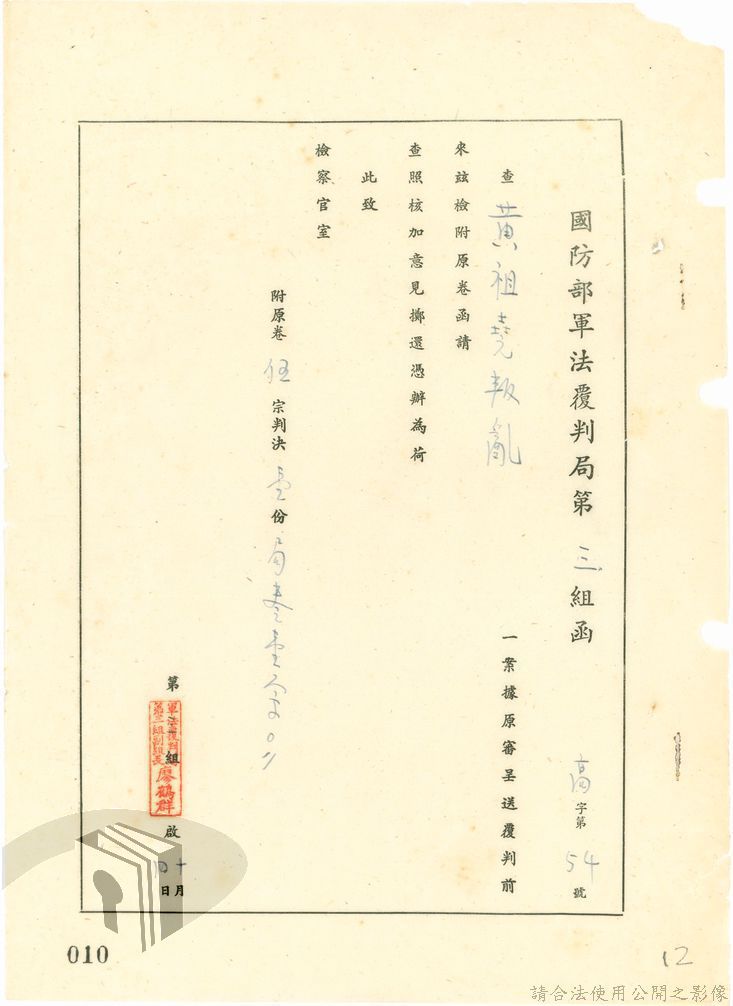 國防部軍法覆判局第三組函 高字第54號
查黃祖堯叛亂一案據原審呈送覆判前
來茲檢附原卷函請
查照核加意見擲還憑辦為荷
此致
檢察官室
附原卷伍宗判決壹份局卷壹宗
第三組 啟 十月 日
軍法覆判局
第三組副組長
廖鶴群
010
12
請合法使用公開之影像